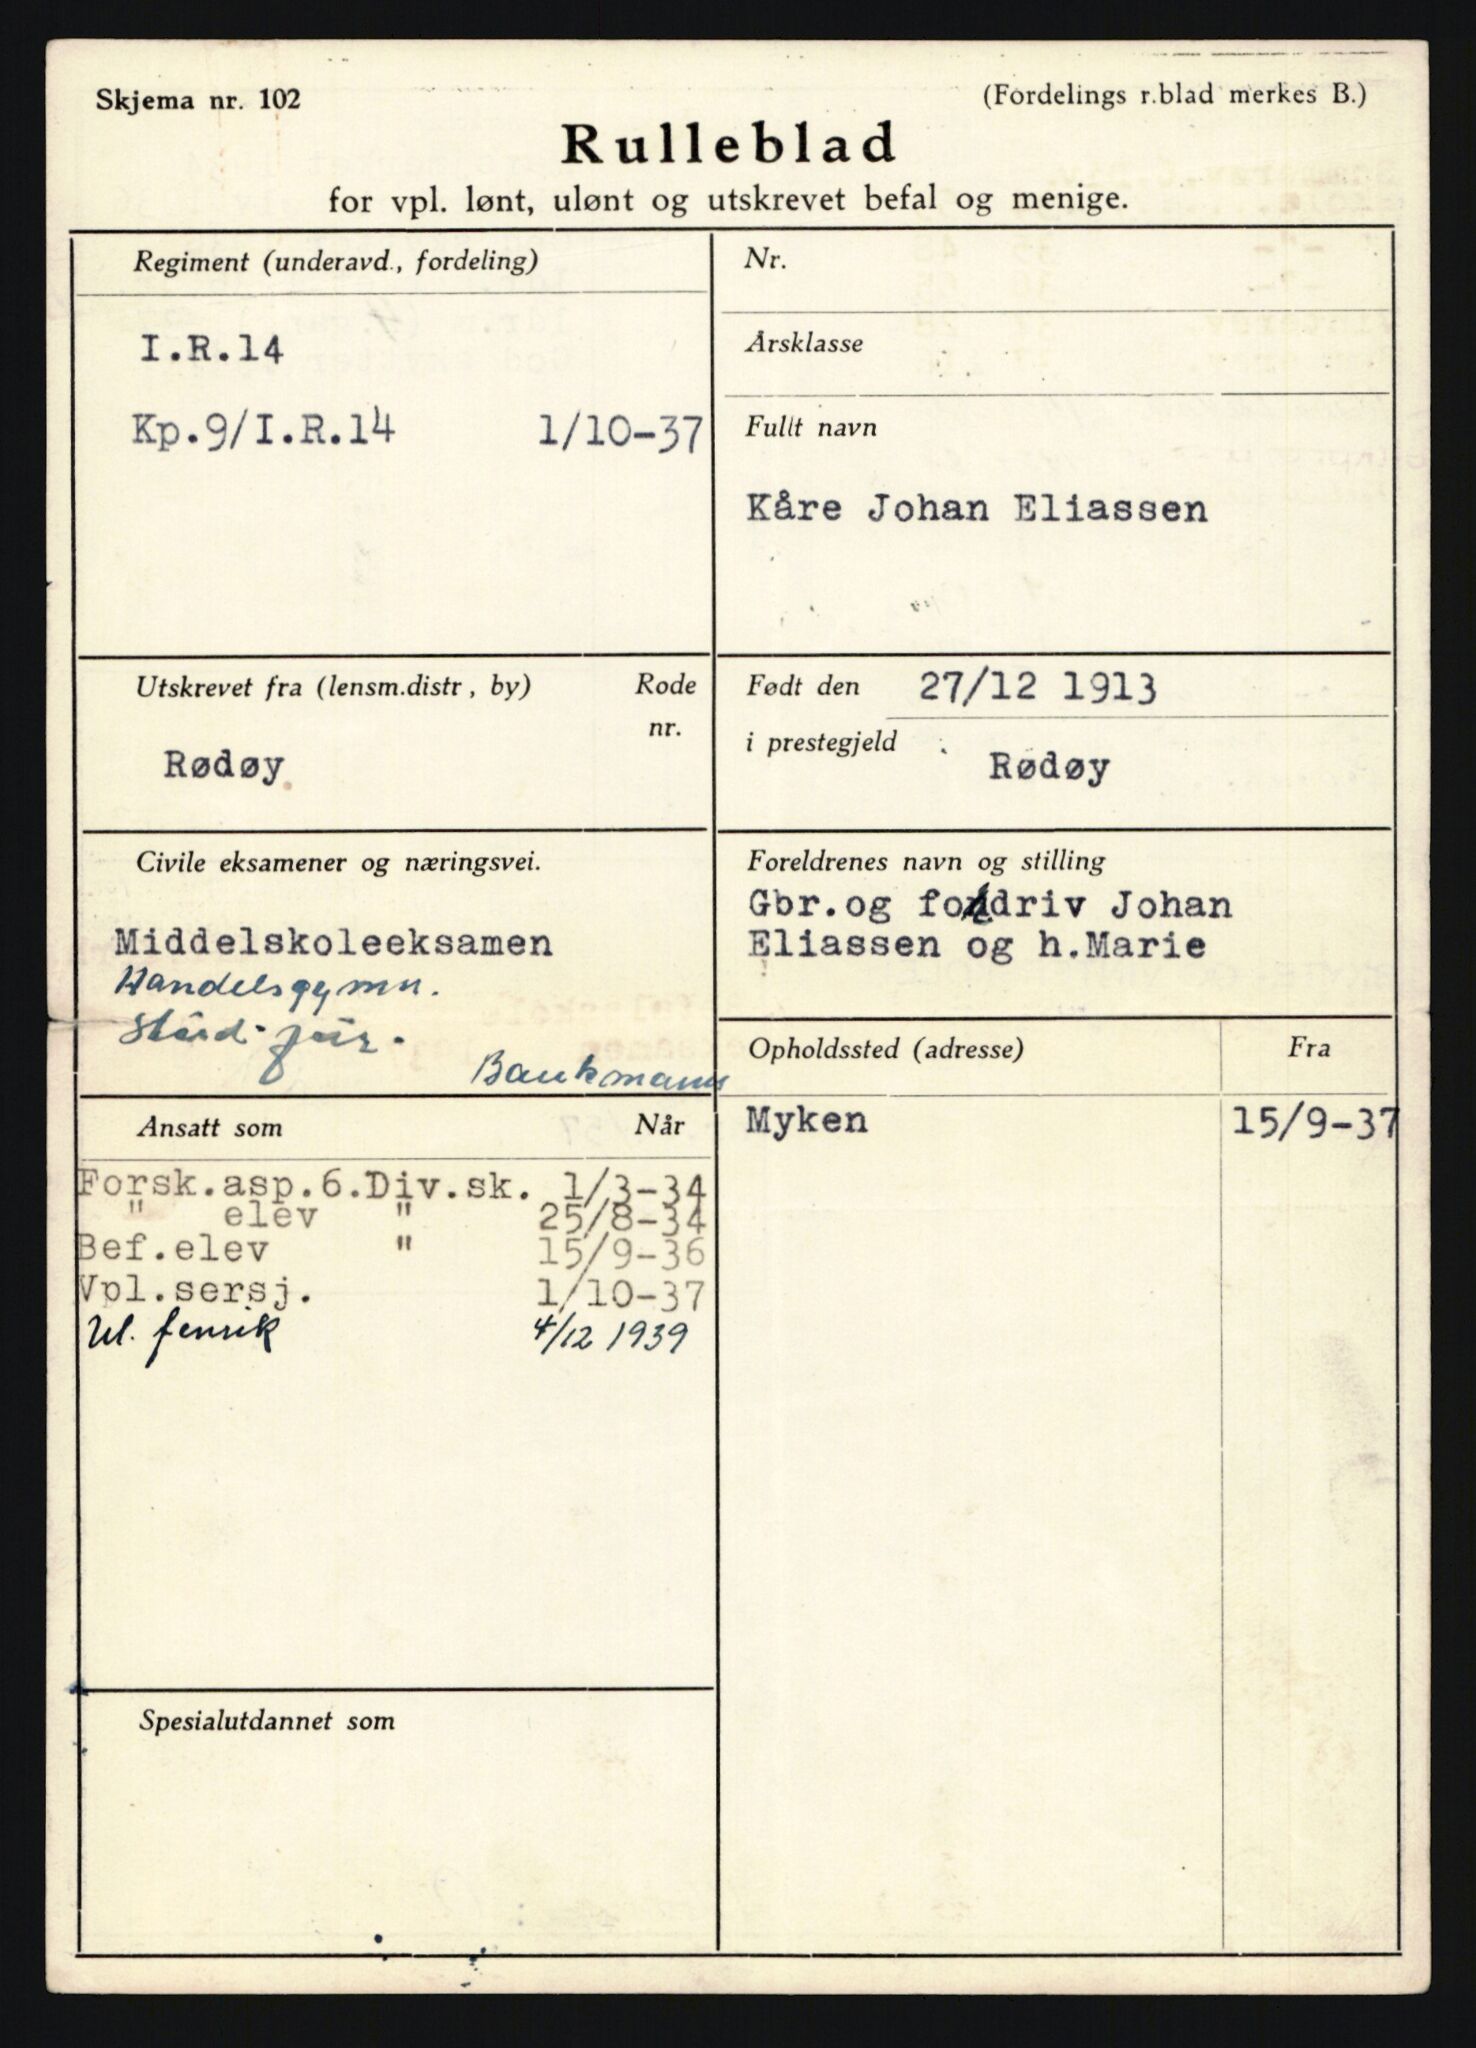 Skjema nr. 102
(Fordelings r.blad merkes B.)
Rulleblad
for vpl. lønt, ulønt og utskrevet befal og menige.
Regiment (underavd., fordeling)
I.R.14
Kp.9/I.R.14 1/10-37
Nr.
Årsklasse
Fullt navn
Kåre Johan Eliassen
Utskrevet fra (lensm.distr, by) Rode
nr.
Rødøy
Født den 27/12 1913
i prestegjeld
Rødøy
Civile eksamener og næringsvei.
Middelskoleeksamen
Handelsgymn.
Stud. jur.
Bankmann
Foreldrenes navn og stilling
Gbr.og fordriv Johan
Eliassen og h.Marie
Ansatt som Når
Forsk.asp.6.Div.sk. 1/3-34
" elev " 25/8-34
Bef.elev " 15/9-36
Vpl.sersj. 1/10-37
Ul. fenrik 4/12 1939
Opholdssted (adresse) Fra
Myken 15/9-37
Spesialutdannet som